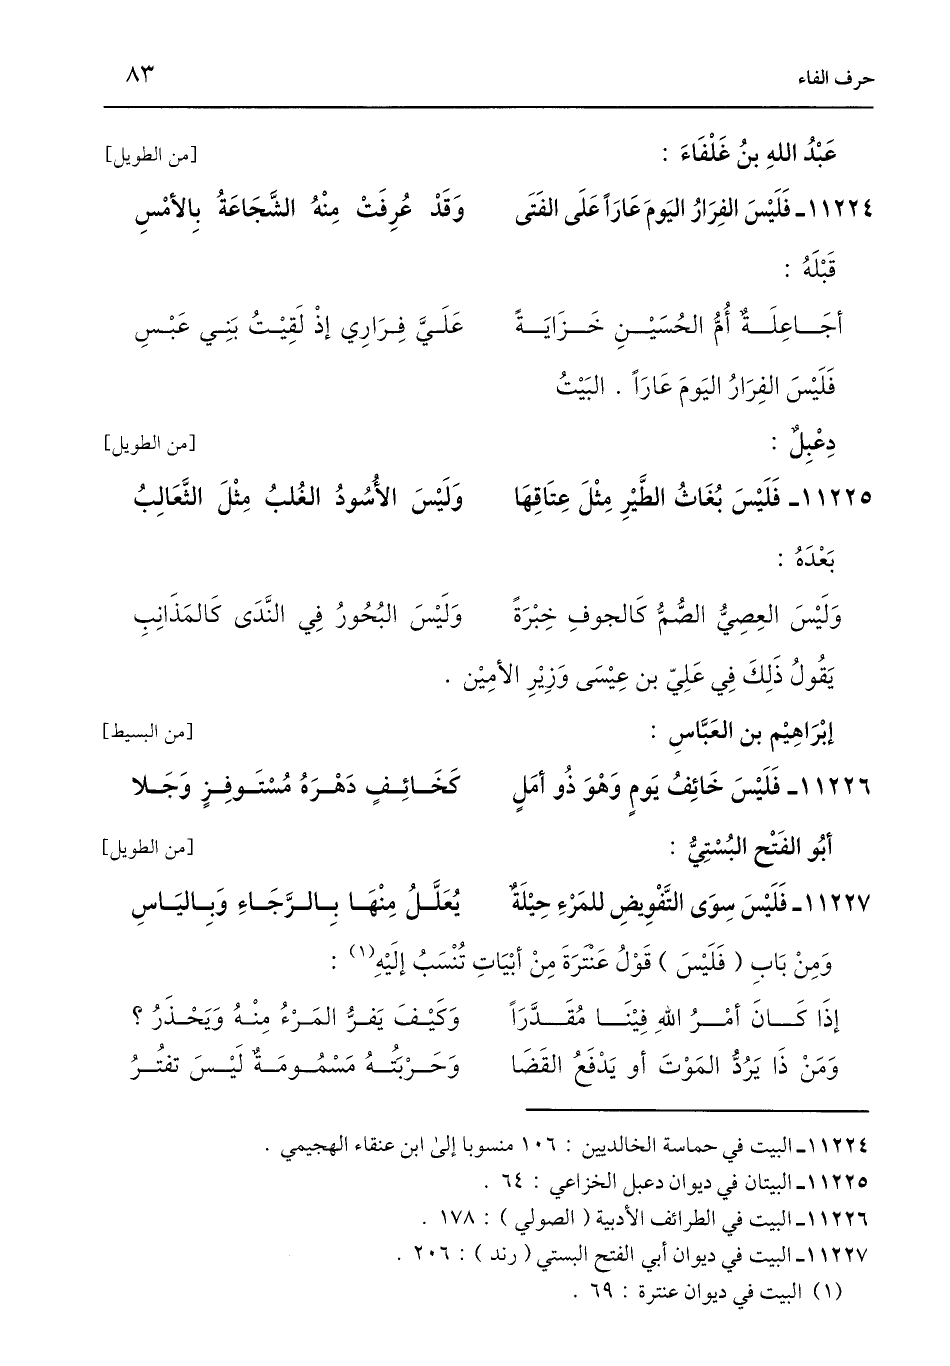 حرف الفاء ٨٣
عَبْدُ اللهِ بنُ غَلْفَاءَ : [من الطويل]
١١٢٢٤ـ فَلَيْسَ الفِرَارُ اليَومَ عَارَاً عَلَى الفَتَى وَقَدْ عُرِفَتْ مِنْهُ الشَّجَاعَةُ بِالأَمْسِ
قَبْلَهُ :
أجَـاعِلَـةٌ أُمُّ الحُسَيْـنِ خَـزَايَـةً عَلَـيَّ فِـرَارِي إذْ لَقِيْـتُ بَنِـي عَبْـسِ
فَلَيْسَ الفِرَارُ اليَومَ عَارَاً . البَيْتُ
دِعْبِلٌ : [من الطويل]
١١٢٢٥ـ فَلَيْسَ بُغَاثُ الطَّيْرِ مِثْلَ عِتَاقِهَا وَلَيْسَ الأُسُودُ الغُلبُ مِثْلَ الثَّعَالِبُ
بَعْدَهُ :
وَلَيْسَ العِصِيُّ الصُّمُّ كَالجوفِ خِبْرَةً وَلَيْسَ البُحُورُ فِي النَّدَى كَالمَذَانِبِ
يَقُولُ ذَلِكَ فِي عَلِيّ بن عِيْسَى وَزِيْرِ الأمِيْن .
إبْرَاهِيْم بن العَبَّاسِ : [من البسيط]
١١٢٢٦ـ فَلَيْسَ خَائِفُ يَومٍ وَهْوَ ذُو أمَلٍ كَخَـائِـفٍ دَهْـرَهُ مُسْتَـوفِـزٍ وَجَـلا
أبُو الفَتْح البُسْتِيُّ : [من الطويل]
١١٢٢٧ـ فَلَيْسَ سِوَى التَّفْوِيضِ للمَرْءِ حِيْلَةٌ يُعَلَّـلُ مِنْهَـا بِـالـرَّجَـاءِ وَبِـاليَـاسِ
وَمِنْ بَابِ ( فَلَيْسَ ) قَوْلُ عَنْتَرَةَ مِنْ أبْيَاتِ تُنْسَبُ إلَيْهِ(١) :
إذَا كَـانَ أمْـرُ اللهِ فِيْنَـا مُقَـدَّرَاً وَكَيْـفَ يَفـرُّ المَـرْءُ مِنْـهُ وَيَحْـذَرُ ؟
وَمَنْ ذَا يَرُدُّ المَوْتَ أو يَدْفَعُ القَضَا وَحَـرْبَتُـهُ مَسْمُـومَـةٌ لَيْـسَ تفتُـرُ
١١٢٢٤ـ البيت في حماسة الخالديين : ١٠٦ منسوبا إلىٰ ابن عنقاء الهجيمي .
١١٢٢٥ـ البيتان في ديوان دعبل الخزاعي : ٦٤ .
١١٢٢٦ـ البيت في الطرائف الأدبية ( الصولي ) : ١٧٨ .
١١٢٢٧ـ البيت في ديوان أبي الفتح البستي ( رند ) : ٢٠٦ .
(١) البيت في ديوان عنترة : ٦٩ .